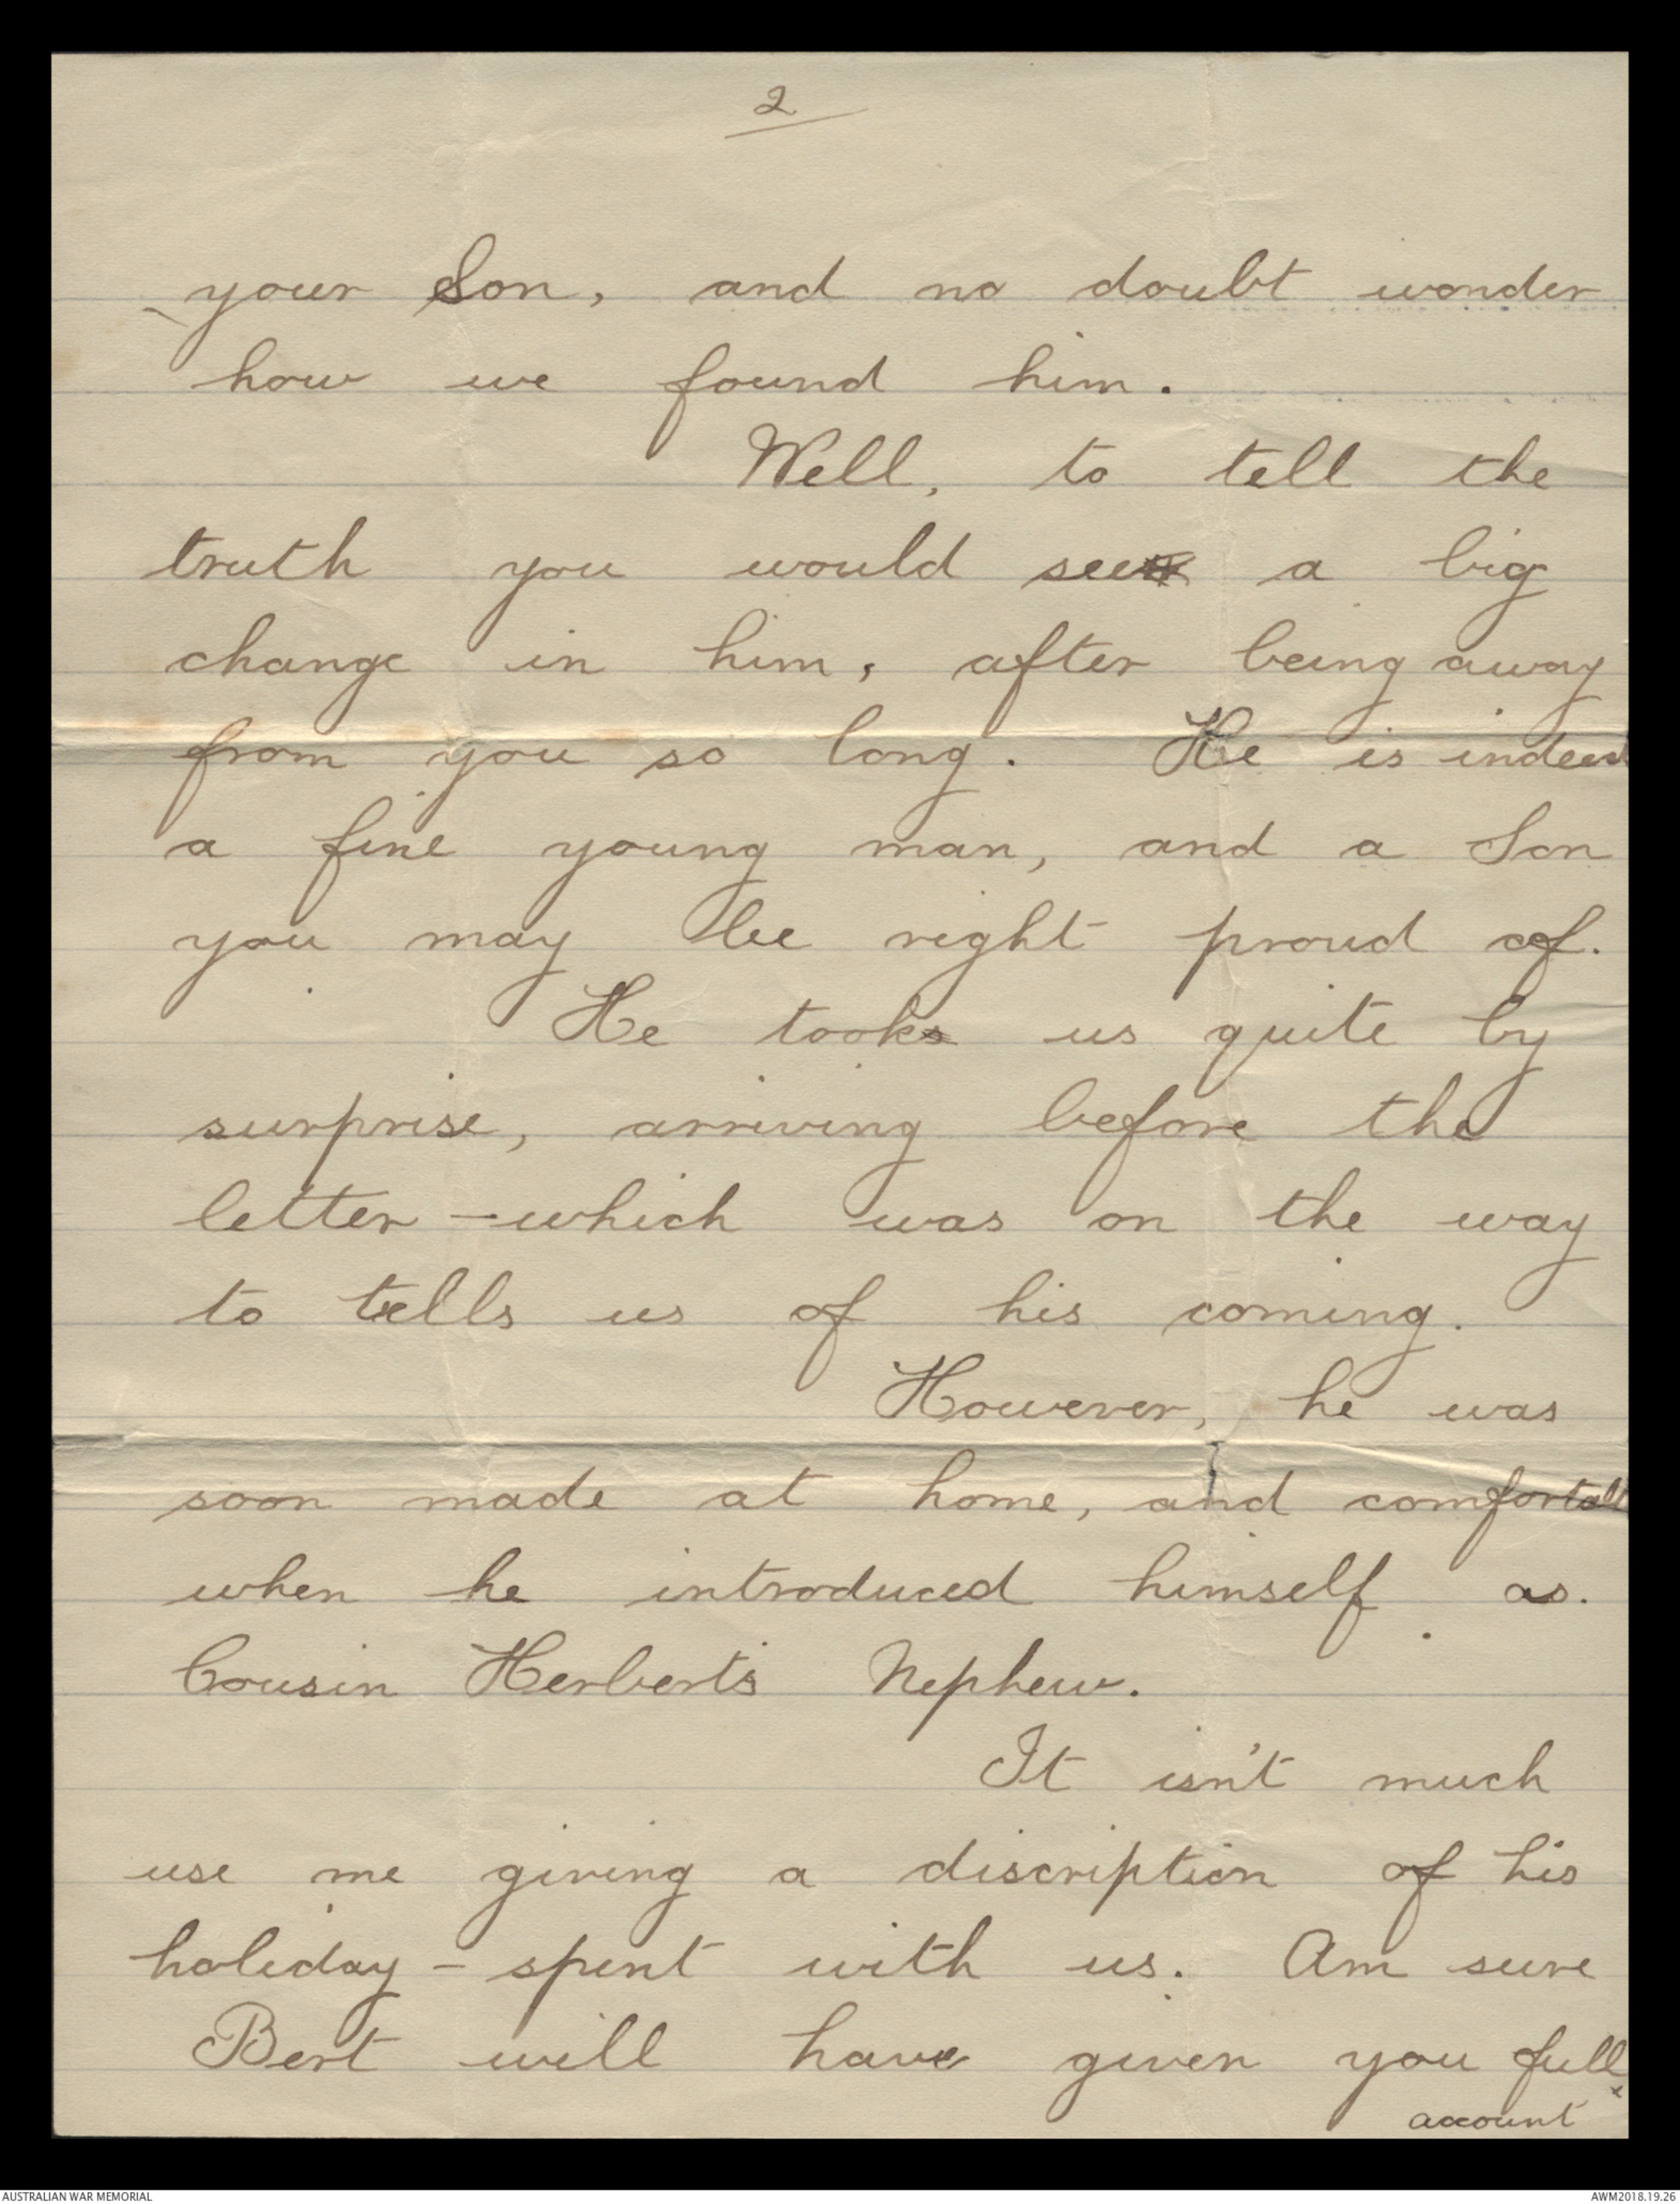 2
your Son, and no doubt wonder
how we found him.
Well, to tell the
truth you would see a big
change in him, after being away
from you so long. He is indeed
a fine young man, and a Son
you may be right proud of.
He took us quite by
surprise, arriving before the
letter - which was on the way
to tells us of his coming.
However, he was
soon made at home, and comfortabl
when he introduced himself as.
Cousin Herbert's Nephew.
It isn't much
use me giving a discription of his
holiday - spent with us. Am sure
Bert will have given you full
account
AUSTRALIAN WAR MEMORIAL
AWM2018.19.26